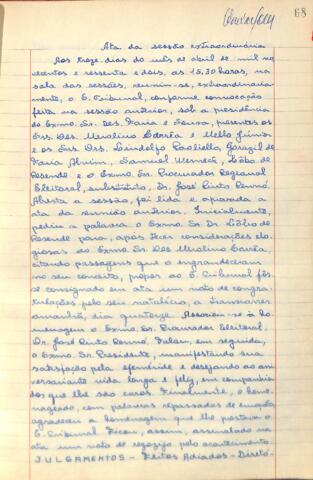 68
Ata da sessão extraordinária
Aos treze dias do mês de abril de mil no-
vecentos e sessenta e dois, às 15,30 horas, na
sala das sessões, reuniu-se, extraordinaria-
mente, o E. Tribunal, conforme convocação
feita na sessão anterior, sob a presidência
do Exmo. Sr. Des. Faria e Sousa, presentes os
Srs. Des. Merolino Corrêa e Mello Júnior
e os Srs. Drs. Lindolfo Paoliello, Gorazil de
Faria Alvim, Samuel Werneck, Lídio de
Resende e o Exmo. Sr. Procurador Regional
Eleitoral, substituto, Dr. José Pinto Rennó.
Aberta a sessão, foi lida e aprovada a
ata da reunião anterior. Inicialmente,
pediu a palavra o Exmo. Sr. Dr. Lídio de
Resende para, após tecer considerações elo-
giosas do Exmo. Sr. Des. Merolino Corrêa,
citando passagens que o engrandeceram
no seu conceito, propor ao E. Tribunal fôs-
se consignado em ata um voto de congra-
tulações pelo seu natalício, a transcorrer
amanhã, dia quatorze. Associou-se à ho-
menagem o Exmo. Sr. Procurador Eleitoral,
Dr. José Pinto Rennó. Falou, em seguida,
o Exmo. Sr. Presidente, manifestando sua
satisfação pela efeméride e desejando ao ani-
versariante vida longa e feliz, em companhia
dos que lhe são caros. Finalmente, o home-
nageado, com palavras repassadas de emoção,
agradeceu a homenagem que lhe prestava o
E. Tribunal. Ficou, assim, assinalado na
ata um voto de regozijo pelo acontecimento.
JULGAMENTOS - Feitos Adiados - Diretó-